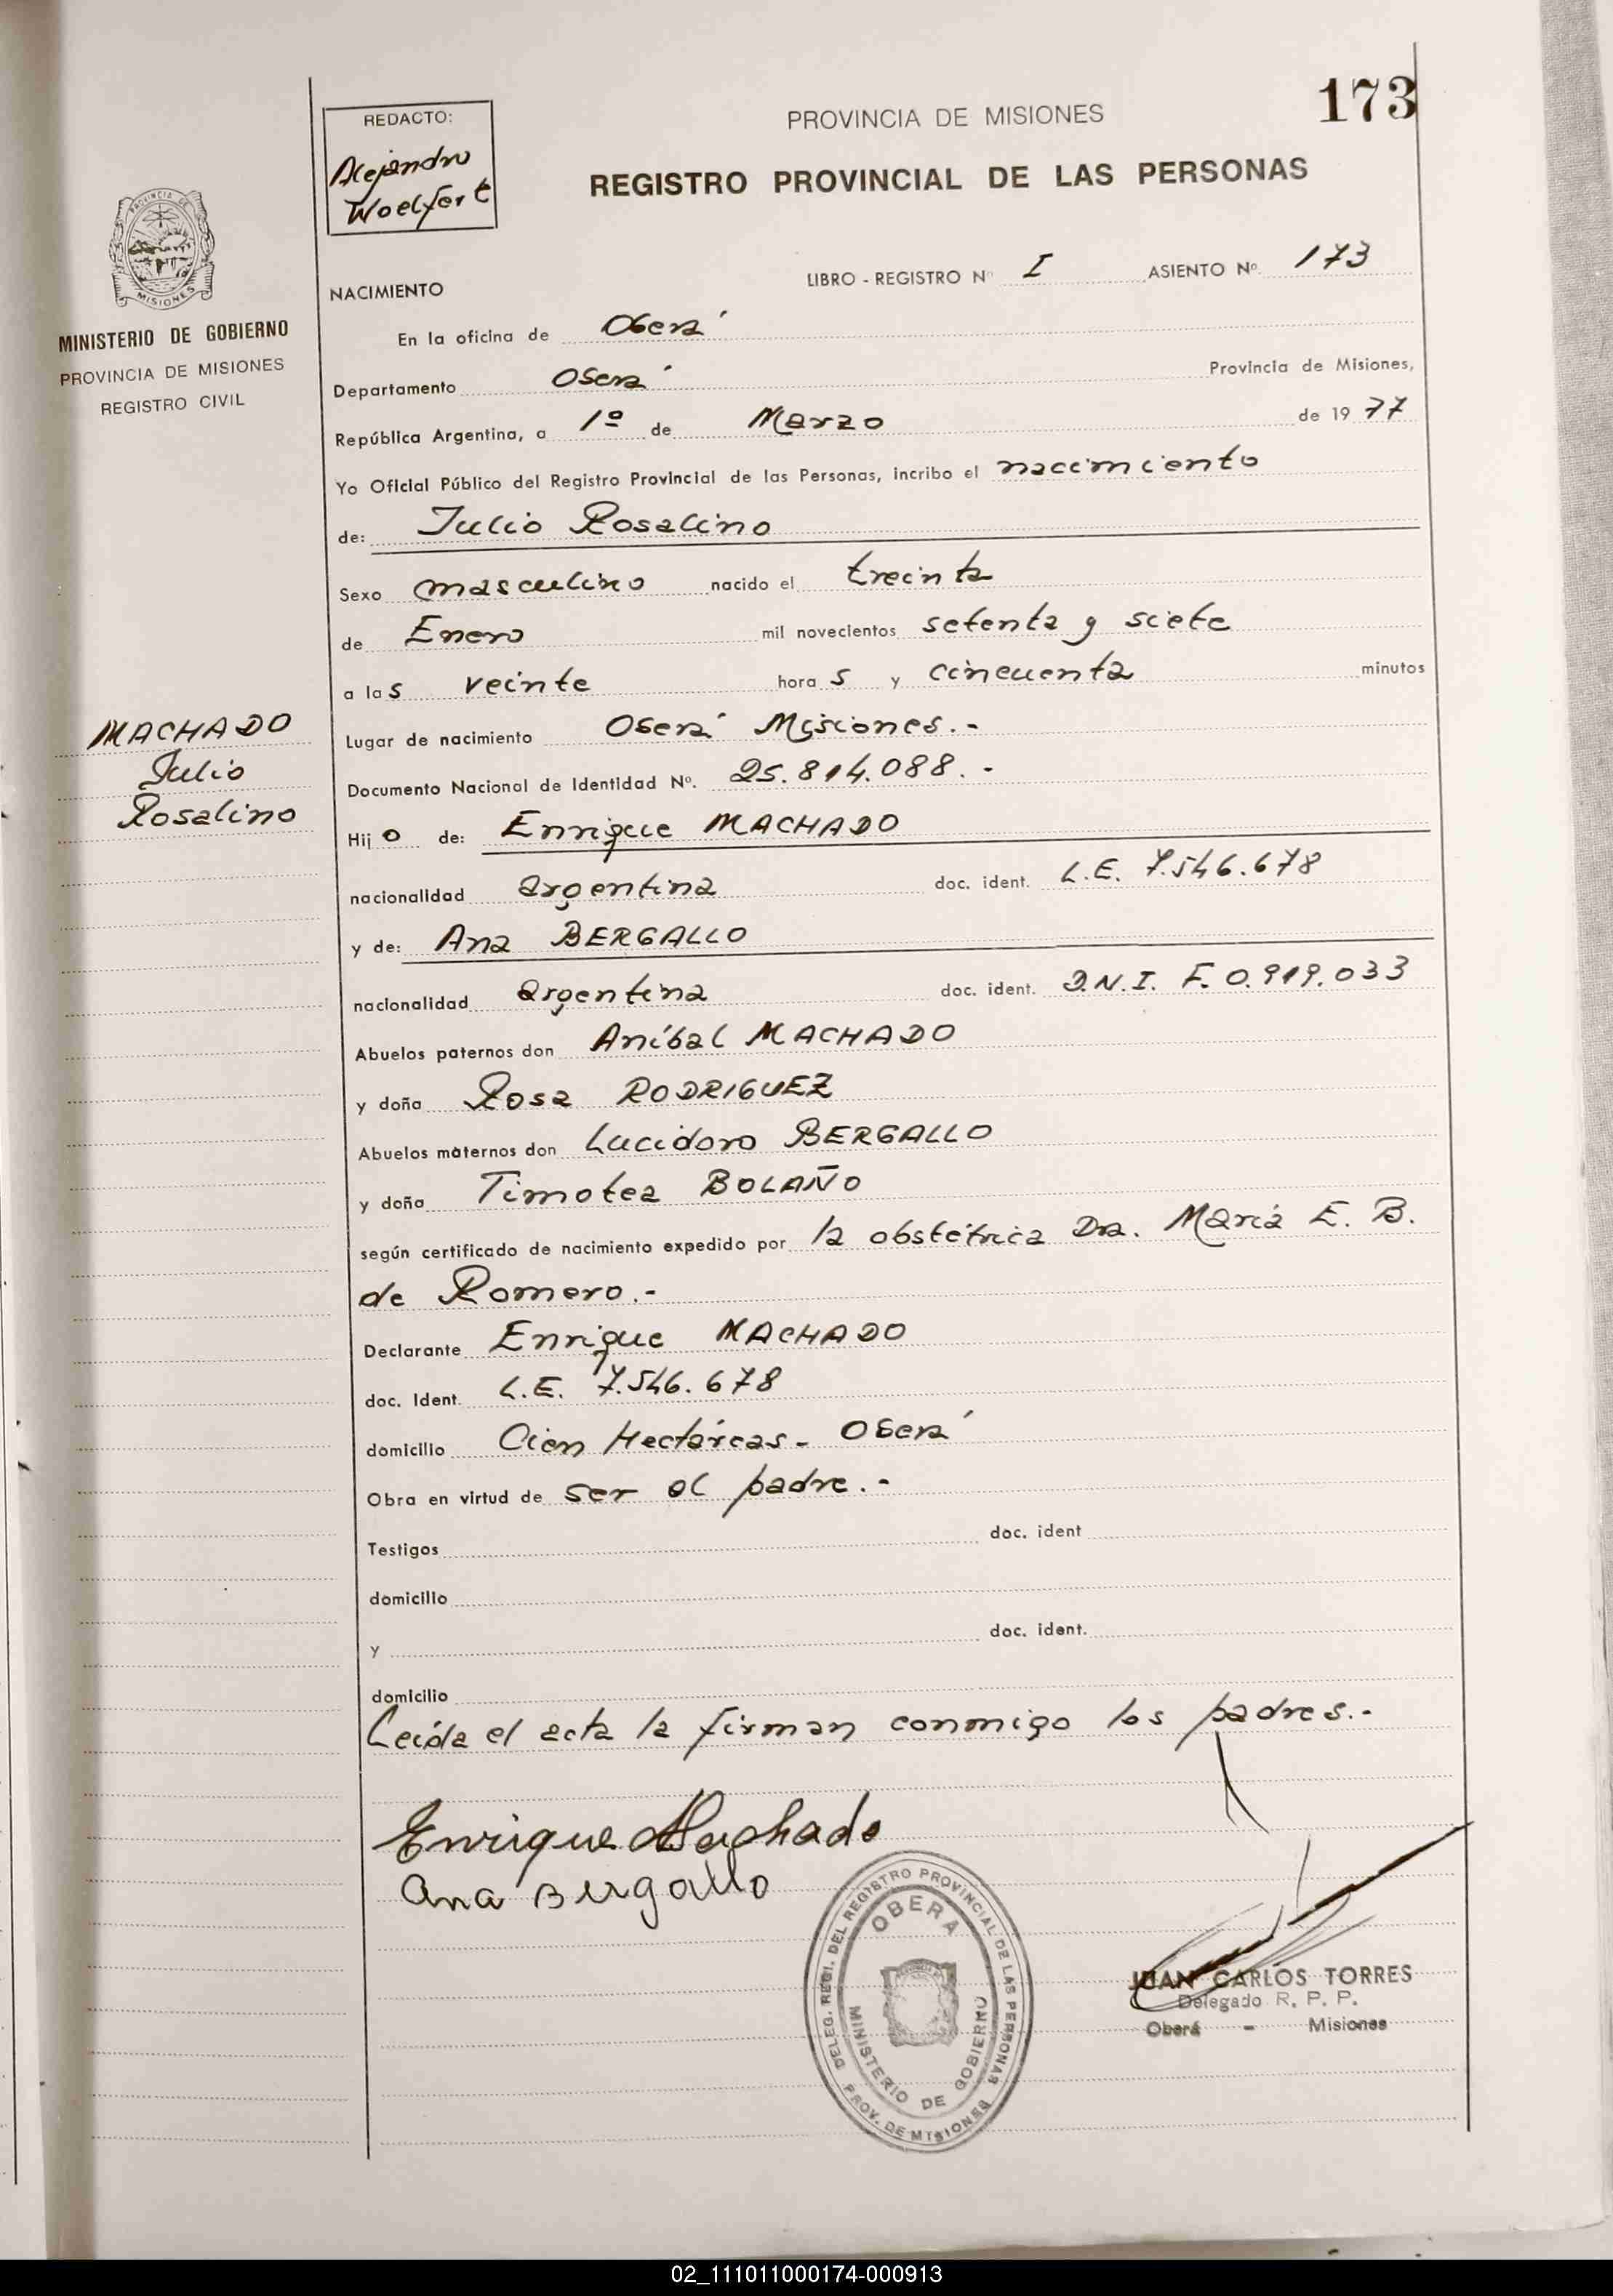 173
REDACTO:
Alejandro
Woelfert
PROVINCIA DE MISIONES
REGISTRO PROVINCIAL DE LAS PERSONAS
PROVINCIA DE
MISIONES
MINISTERIO DE GOBIERNO
PROVINCIA DE MISIONES
REGISTRO CIVIL
NACIMIENTO LIBRO - REGISTRO Nº I ASIENTO Nº. 173
En la oficina de Oberá
Departamento Oberá Provincia de Misiones,
República Argentina, a 1º de Marzo de 1977
Yo Oficial Público del Registro Provincial de las Personas, incribo el nacimiento
de: Julio Rosalino
Sexo masculino nacido el treinta
de Enero mil novecientos setenta y siete
a las veinte horas y cincuenta minutos
MACHADO
Julio
Rosalino
Lugar de nacimiento Oberá Misiones.-
Documento Nacional de Identidad Nº. 25.814.088.-
Hijo de: Enrique MACHADO
nacionalidad argentina doc. ident. L.E. 7.546.678
y de: Ana BERGALLO
nacionalidad argentina doc. ident. D.N.I. F. 0.919.033
Abuelos paternos don Aníbal MACHADO
y doña Rosa RODRIGUEZ
Abuelos maternos don Lucidoro BERGALLO
y doña Timotea BOLAÑO
según certificado de nacimiento expedido por la obstétrica Dra. María E. B.
de Romero.-
Declarante Enrique MACHADO
doc. Ident. L.E. 7.546.678
domicilio Cien Hectáreas - Oberá
Obra en virtud de ser el padre.-
Testigos doc. ident
domicilio
y doc. ident.
domicilio
Leída el acta la firman conmigo los padres.-
Enrique Machado
Ana Bergallo
DELEG. REGI. DEL REGISTRO PROVINCIAL DE LAS PERSONAS
OBERA
MINISTERIO DE GOBIERNO
PROV. DE MISIONES
JUAN CARLOS TORRES
Delegado R. P. P.
Oberá - Misiones
02_111011000174-000913